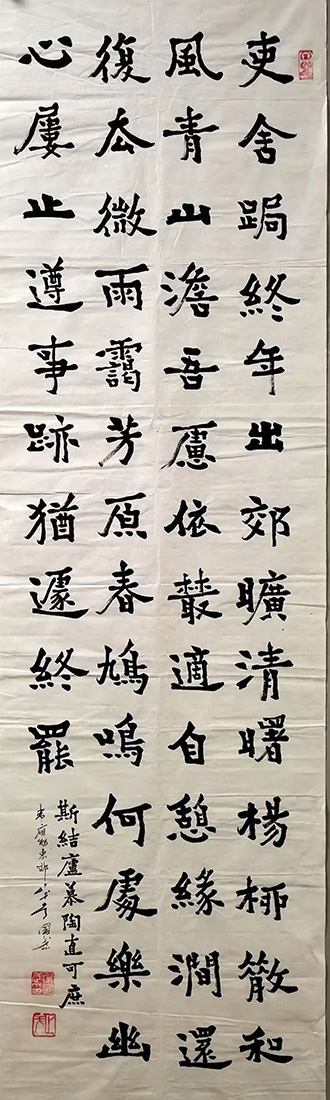 吏舍跼終年出郊曠清曙楊柳散和
風青山澹吾慮依叢適自憩緣澗還
復去微雨靄芳原春鳩鳴何處樂幽
心屢止遵事跡猶遽終罷
斯結廬慕陶直可庶
韋應物東郊